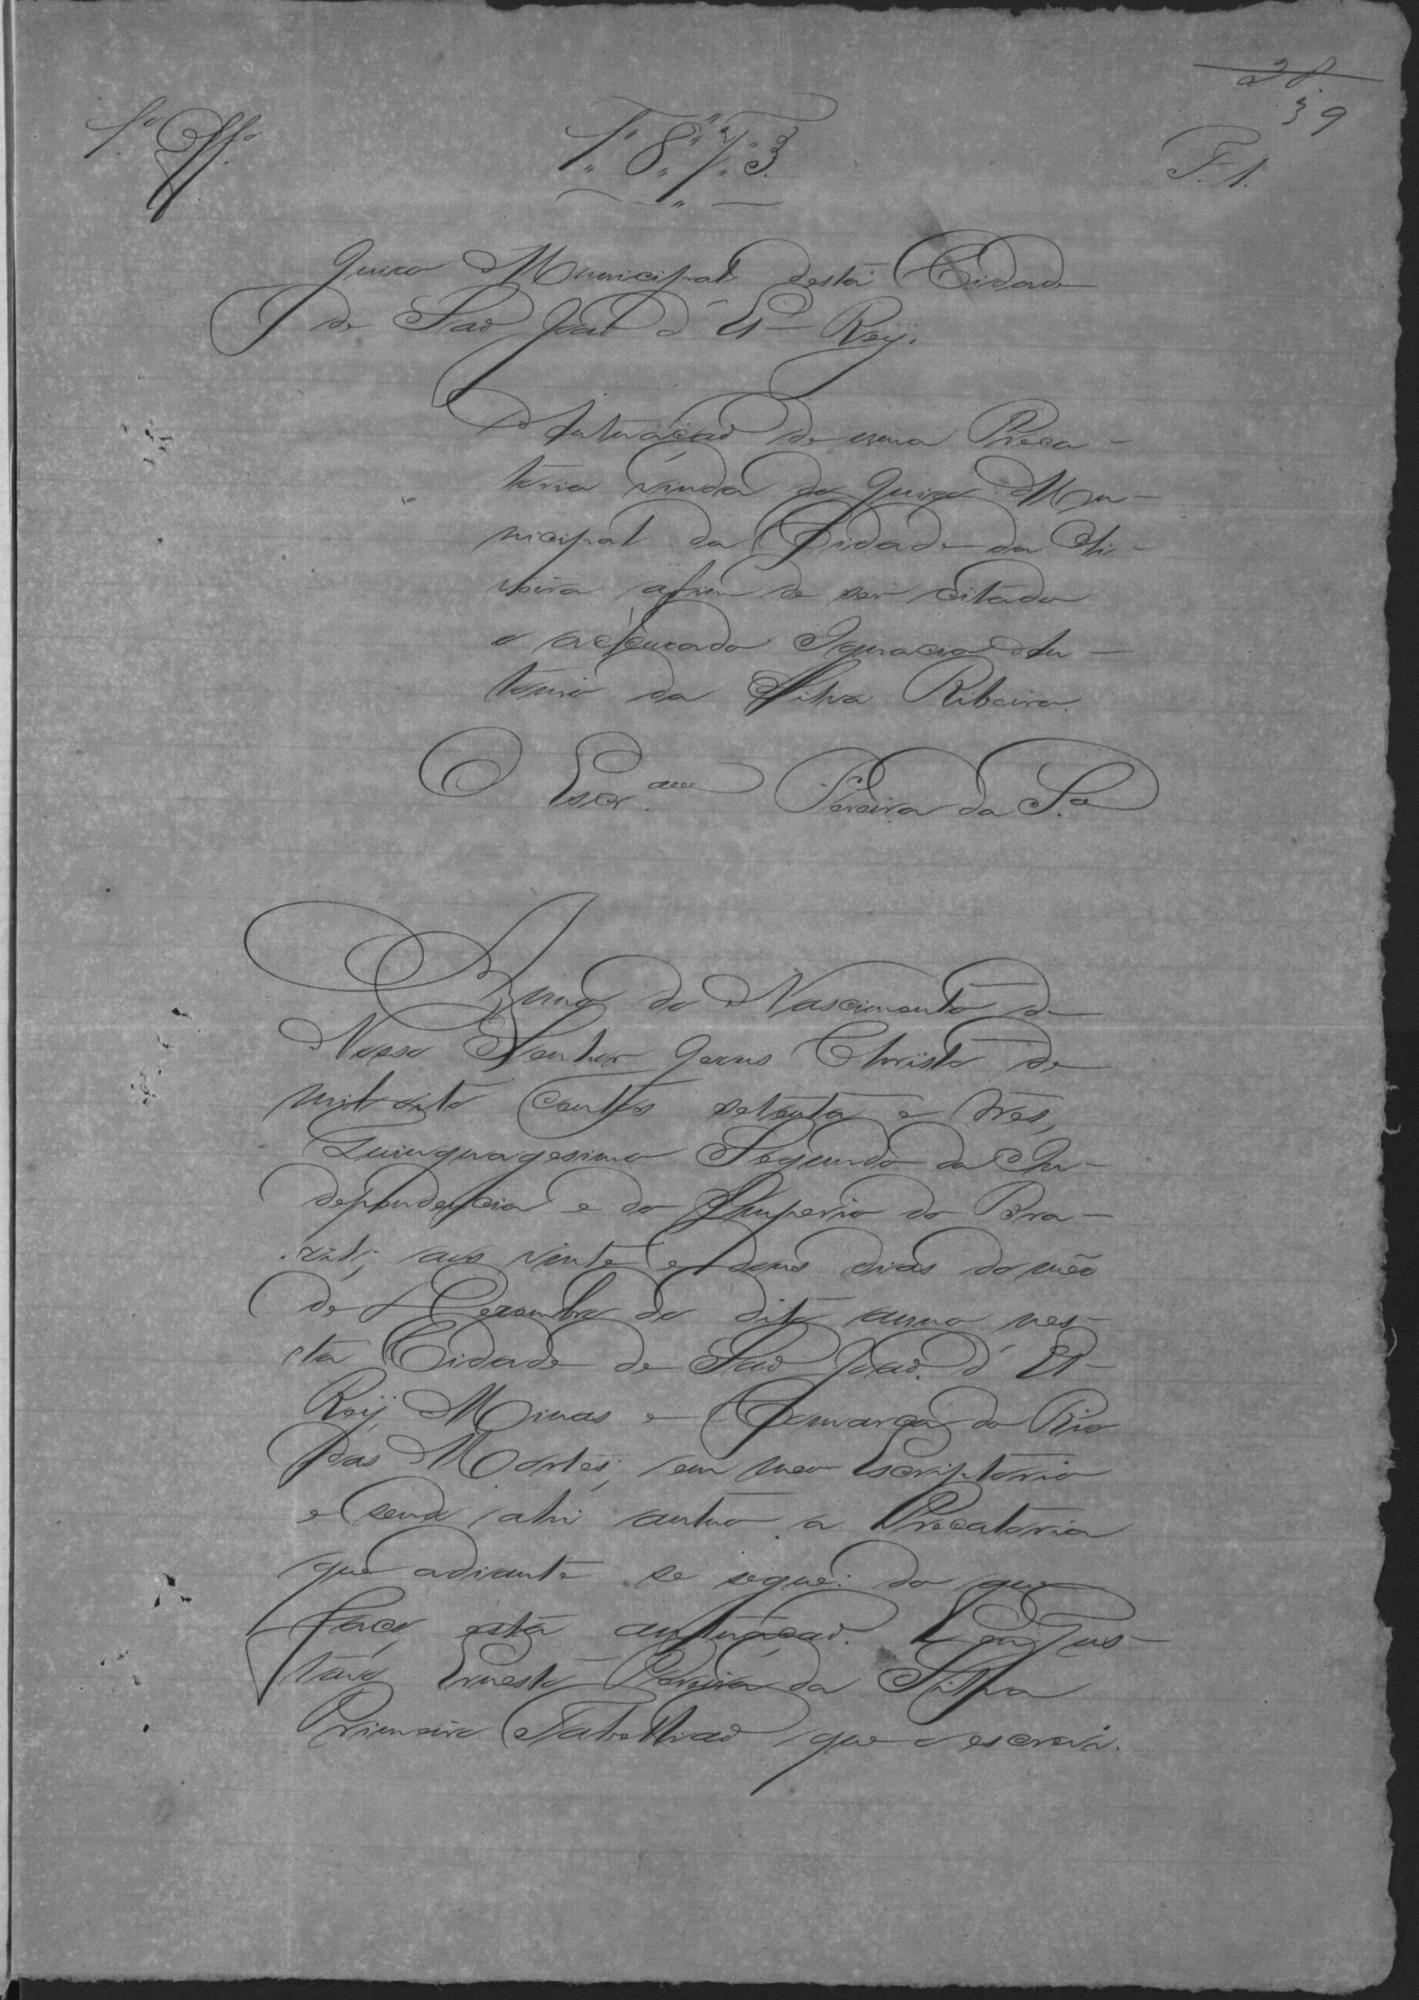 28.
39
1.º Off.º
1873.
F. 1.
Juizo Municipal desta Cidade
de São João d'El- Rey.
Autuação de uma Preca-
toria vinda do Juizo Mu-
nicipal da Cidade da Oli-
veira afim de ser citado
o Ignacio An-
tonio da Silva Ribeiro.
O Escr.am Pereira da S.ª
Anno do Nascimento de
Nosso Senhor Jesus Christo de
mil oito centos setenta e tres,
Quinquagesimo Segundo da In-
dependencia e do Imperio do Bra-
zil; aos vinte e dous dias do mes
de Dezembro do dito anno nes-
ta Cidade de São João d'El-
Rey, Minas e Comarca do Rio
das Mortes, em meo Escriptorio
e sendo ahi autuo a Precatoria
que adiante se segue: do que
faço esta autuação. Eu Gus-
tavo Ernesto Pereira da Silva
Primeiro Tabellião que o escrevi.